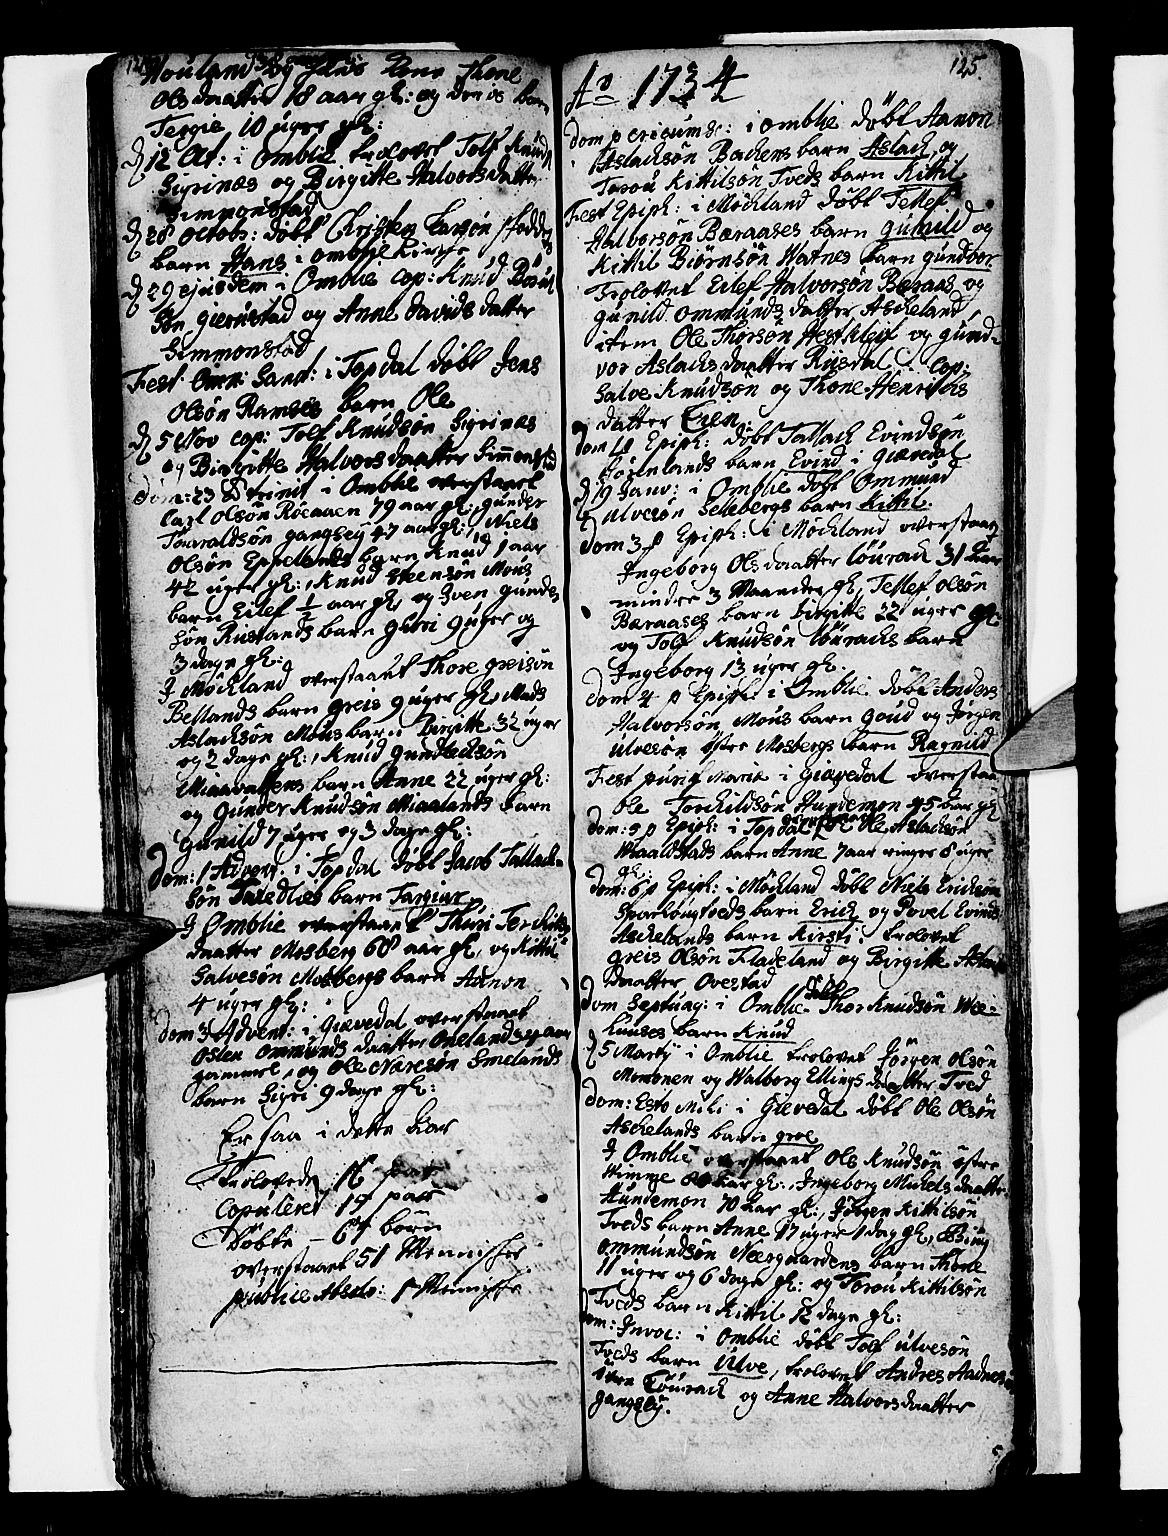 124
Olsdaatter 18 aar gl: og deres barn
Tergie 10 uger gl:
D 12 Oct: i Omblie trolovet Tolf Knuds
Sigrinæs og Birgitte Halvorsdatter
Simmonstad
D 28 Octobr: døbt Christen Larsøn
barn Hans i omblie Kirche
D 29 ejusdem i Omblie cop: Knud
Søn gierustad og Anne Davids datter
Simmonstad
Fest Omn: Sanct: i Topdal døbt Jens
Olsøn Ramses barn Ole
D 5 Nov cop: Tolf Knudsøn Sigrinæs
og Birgitte Halvors daatter Simmonstad
Dom: 23 p trinit i Omblie overstaaet
Carl Olsøn Roeaaen 79 aar gl: gunder
Taaraldsøn gangsey 47 aar gl: Niels
Olsøn Eppelands barn Knud 1 aar
42 uger gl:, Knud Steensøn Mous
barn Eilef ½ aar gl, og Sven gunde
søn Rustands barn guri 9 uger og
3 dage gl:
J Möckland overstaaet Thore greisøn
Bestands barn greis 9 uger gl, Mads
Aslachsøn Mous barn Birgitte 32 uger
og 2 dage gl:, Knud gundlechsøn
Miaavatens barn Anne 22 uger gl:
og Gunder Knudsøn Miaalands barn
Gunild 7 uger og 3 dage gl:
Dom: 1 Advent: i Topdal døbt Jacob Tallach-
søn barn Targiær
J Omblie overstaaet Thuri Terchils
daatter Mosberg 68 aar gl, og Kittil
Salvesøn Mosbergs barn Aanon
4 uger gl:
Dom 3 Advent: i Giævedal overstaaet
Osten Ommunds daatter Oneland
gammel, og Ole Næresøn Smelands
barn Sigri 9 dage gl:
Er saa i dette Aar
Trolovede 16 par
Copuleret 19 par
Døbte – 67 børn
overstaaet 51 Mennischer
publice Absolv: 1 Mennische
125
Ao 1734
Dom p Circumc: i omblie døbt Aanon
Aslachsøn Bachens barn Aslach, og
Torou Kittilsøn Tveds barn Kittil
Fest Epiph: i Möckland døbt Tellef
Halvorsøn Beraases barn gunild og
Kittil Biørnsøn Watnes barn gundvor
Trolovet Eilef Halvorsøn Beraas og
gunild Ommunds datter Ascheland,
item Ole Thorsøn Hestkleif og gund-
vor Aslachs daatter Rusdal. Cop:
Salve Knudsøn og Thone Henrichs
datter
Dom 1 p Epiph: døbt Tallach Evindsøn
barn Evind i Giævedal
D 19 Janv: i Omblie døbt Ommund
Ulvesøn Sellebergs barn Kittil.
Dom 3 p Epiph: i Möckland overstaaet
Ingeborg Ols daatter Lourach 31 aar
mindre 3 Maaneder gl, Tellef Olsøn
Beraases barn Birgitte 22 uger gl:
og Tolf Knudsøn Lourachs barn
Ingeborg 13 uger gl:
Dom 4 p Epiph: i Omblie døbt Anders
Halvorsøn Mous barn Goud og Jørgen
Ulvesøn østre Mosbergs barn Ragnild
Fest purif Mariæ i Giævedal overstaa
Ole Torchildsøn Hundemon 45 aar gl
Dom: 5 p Epiph: i Topdal Ole Aslachsøn
barn Anne 7 aar ringer 8 uger
gl:
Dom: 6 p Epiph: i Möckland døbt Niels Erichsøn
barn Erich og Povel Evinds
Aschelands barn Kirsti: trolovet
greis Olsøn Fladeland og Birgitte
daatter Ovestad
Dom Septuag: i Omblie døbt Thor Knudsøn
barn Knud
D 5 Martij i Omblie trolovet Jörgen Olsøn
Momonen og Walborg Ellings daatter Tved
Dom: Esto Mihi i Giævedal døbt Ole Olsøn
Aschelands barn groe
J Omblie overstaaet Ole Knudsøn østre
Wimme aar gl:, Ingeborg Michels daatter
Hundemon 70 aar gl:, Jörgen Kittilsøn
Tveds barn Anne 17 uger 1 dag gl,
Ommundsøn Neergaardens barn Thone
11 uger og 6 dage gl: og Torou Kittilsøn
Tveds barn Kittil 12 dage gl:
Dom: Invoc: i Omblie døbt Tolf Ulvesøn
Tveds barn Ulve, trolovet Andres Aadnesøn
Lourach og Anne Halvorsdaatter
gangsey.